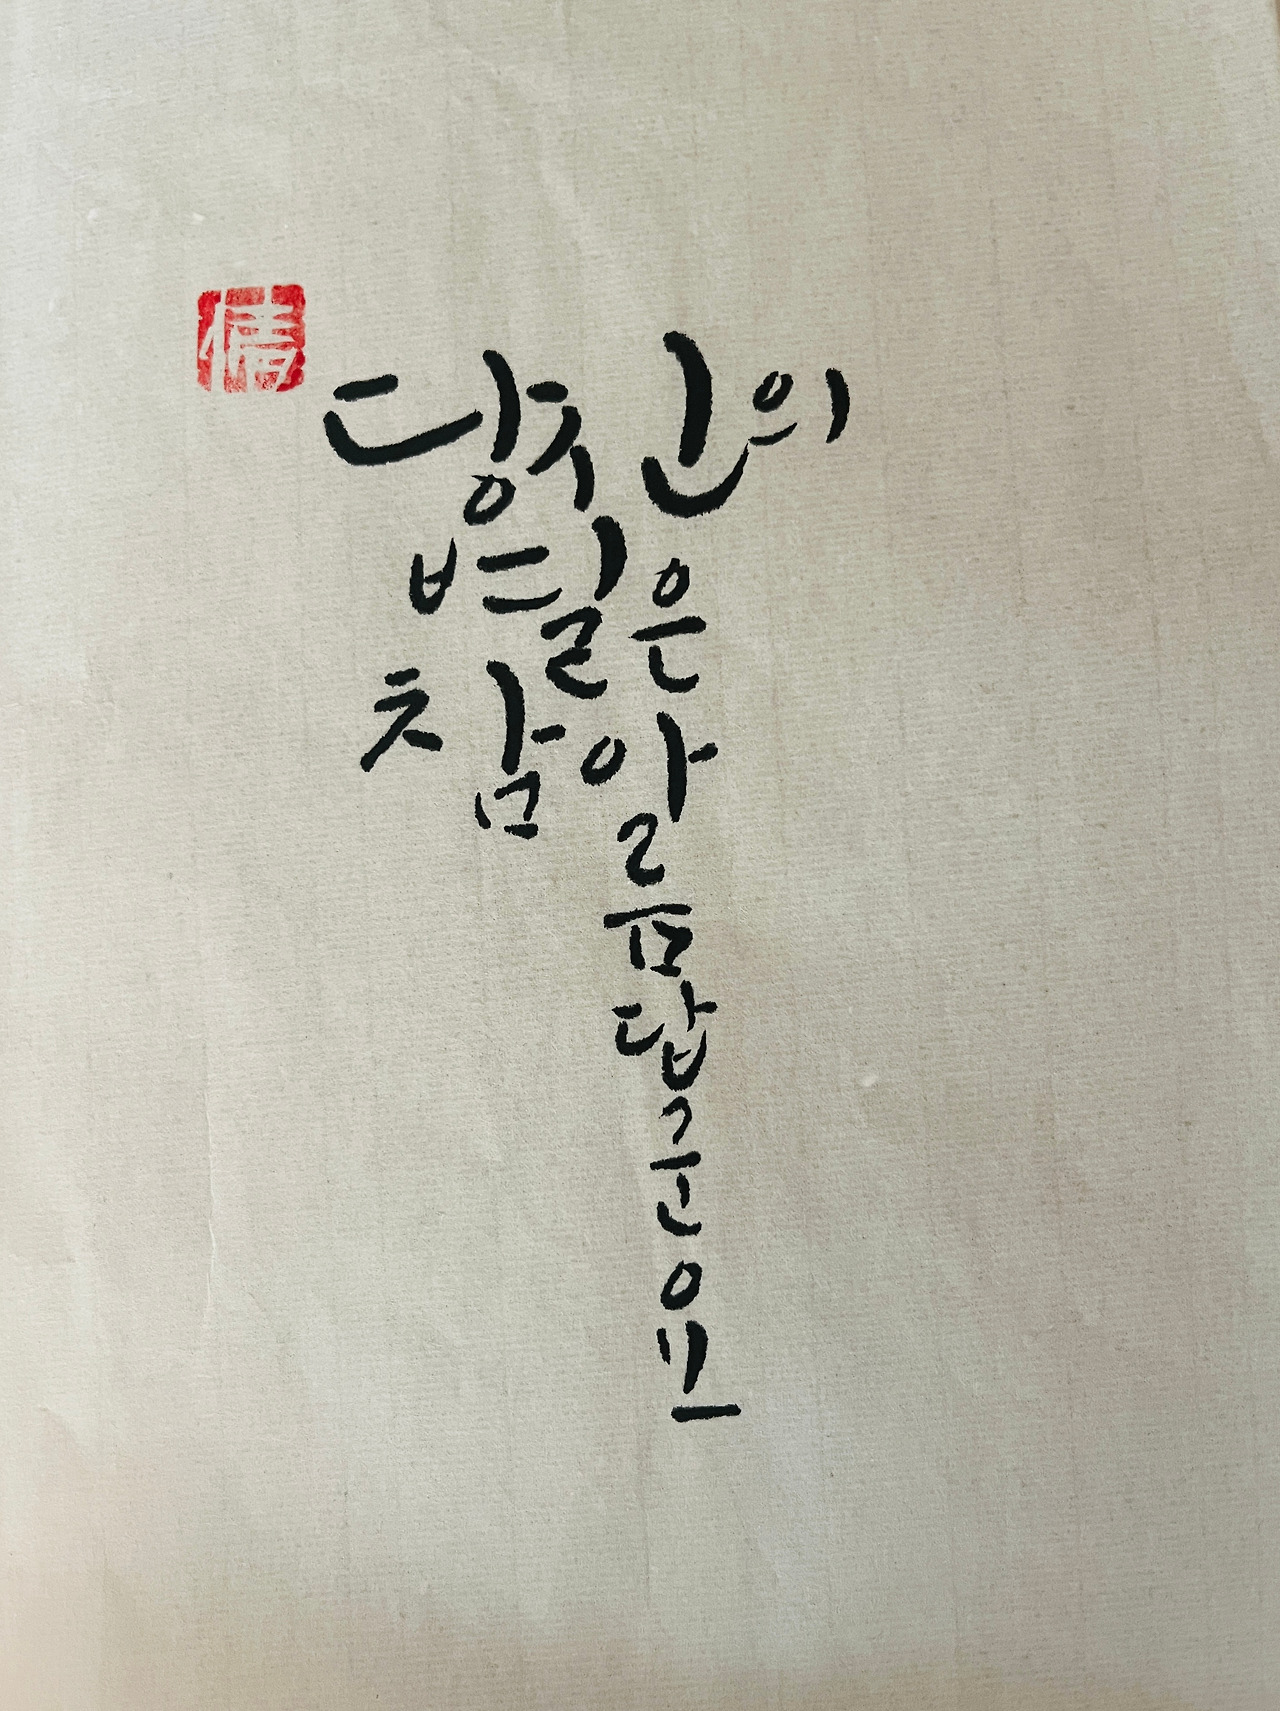 倩
당신의
참 아름답군요